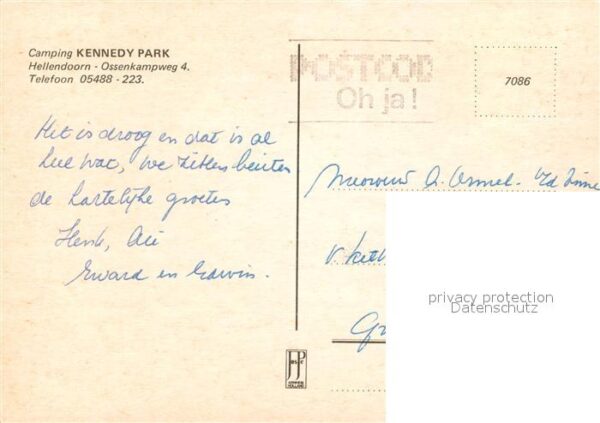 Camping KENNEDY PARK
Hellendoorn - Ossenkampweg 4.
Telefoon 05488 - 223.
POSTCOD
Oh ja!
7086
Het is droog en dat is al
heel wat, we zitten buiten
de hartelijke groeten
Henk, Ali
Eward en Edwin.
Mevrouw A. Ormel - v/d
v.
privacy protection
Datenschutz